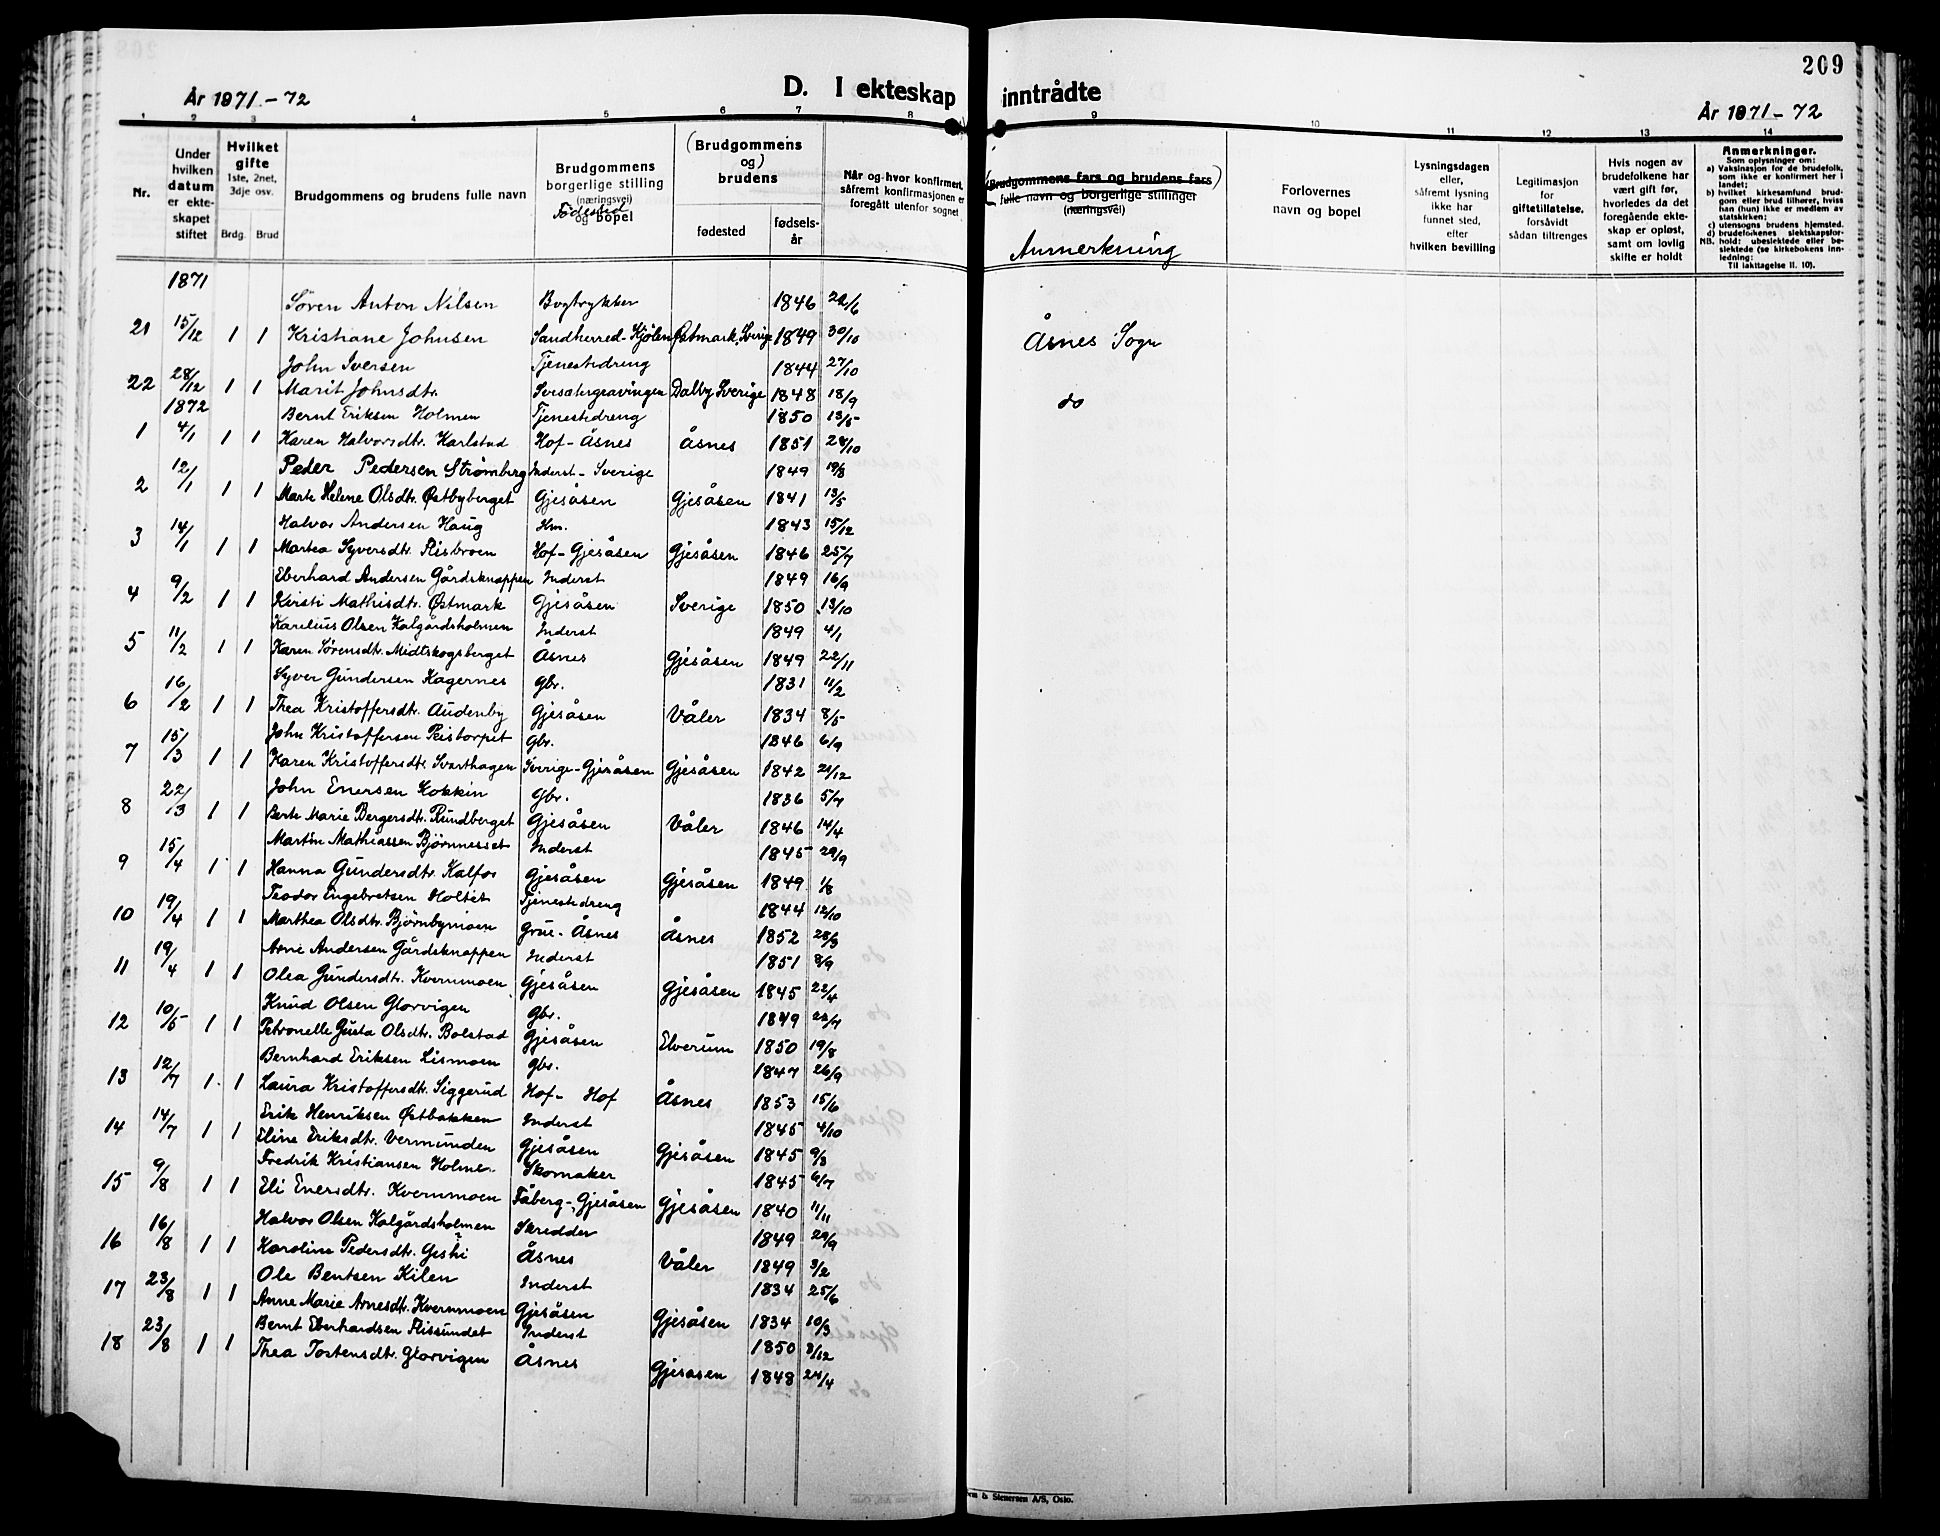 209
År 1871-72
D. I ekteskap inntrådte
År 1871-72
1 2 3 4 5 6 7 8 9 10 11 12 13 14
Nr.
Under hvilken datum er ekteskapet stiftet
Hvilket gifte 1ste, 2net, 3dje osv.
Brdg. Brud
Brudgommens og brudens fulle navn
Brudgommens borgerlige stilling (næringsvei) og bopel
Fødested
(Brudgommens og) brudens
fødested
fødselsår
Når og hvor konfirmert, såfremt konfirmasjonen er foregått utenfor sognet
(Brudgommens fars og brudens fars) fulle navn og borgerlige stillinger (næringsvei)
Anmerkning
Forlovernes navn og bopel
Lysningsdagen eller, såfremt lysning ikke har funnet sted, efter hvilken bevilling
Legitimasjon for giftetillatelse, forsåvidt sådan tiltrenges
Hvis nogen av brudefolkene har vært gift før, hvorledes da det foregående ekteskap er opløst, samt om lovlig skifte er holdt
Anmerkninger.
Som oplysninger om:
a) Vaksinasjon for de brudefolk, som ikke er konfirmert her i landet;
b) hvilket kirkesamfund brudgom eller brud tilhører, hviss han (hun) ikke er medlem av statskirken;
c) utensogns brudens hjemsted.
d) brudefolkenes slektskapsforhold: ubeslektede eller beslektede (se kirkebokens innledning:
NB.
Til iakttagelse II. 10).
1871
Søren Anton Nilsen Bogtrykker 1846 22/6
21 15/12 1 1 Kristiane Johnsen Sandherred-Kjølen Østmark, Sverige 1849 30/10 Åsnes Sogn
John Iversen Tjenestedreng 1844 27/10
22 28/12 1 1 Marit Johnsdtr. Sorsætergravingen Dalby Sverige 1848 18/9 do
1872
Bernt Eriksen Holmen Tjenestedreng 1850 13/5
1 4/1 1 1 Karen Halvorsdtr. Karlstad Hof-Åsnes Åsnes 1851 28/10
Peder Pedersen Strømberg Inderst-Sverige 1849 19/8
2 12/1 1 1 Marte Helene Olsdtr. Østbyberget Gjesåsen Gjesåsen 1841 13/5
Halvor Andersen Haug Hm. 1843 15/12
3 14/1 1 1 Martea Syversdtr. Flisbroen Hof-Gjesåsen Gjesåsen 1846 25/7
Eberhard Andersen Gårdsknappen Inderst 1849 16/9
4 9/2 1 1 Kirsti Mathisdtr. Østmark Gjesåsen Sverige 1850 13/10
Karelius Olsen Kalgårdsholmen Inderst 1849 4/1
5 11/2 1 1 Karen Sørensdtr. Midtskogsberget Åsnes Gjesåsen 1849 22/11
Syver Gundersen Kagernes Gbr. 1831 11/2
6 16/2 1 1 Thea Kristoffersdtr. Audenby Gjesåsen Våler 1834 8/5
John Kristoffersen Peistorpet Gbr. 1846 6/9
7 15/3 1 1 Karen Kristoffersdtr. Svarthagen Sverige-Gjesåsen Gjesåsen 1842 21/12
John Enersen Kokkin Gbr. 1836 5/7
8 22/3 1 1 Berte Marie Bergersdtr. Rundberget Gjesåsen Våler 1846 14/4
Martin Mathiassen Bjørnneset Inderst 1845 29/9
9 15/4 1 1 Hanna Gundersdtr. Kalfos Gjesåsen Gjesåsen 1849 1/8
Teodor Engebretsen Holtet Tjenestedreng 1844 12/10
10 19/4 1 1 Marthea Olsdtr. Bjørnbymoen Grue-Åsnes Åsnes 1852 28/3
Arne Andersen Gårdsknappen Inderst 1851 8/9
11 19/4 1 1 Olea Gundersdtr. Kvernmoen Gjesåsen Gjesåsen 1845 22/4
Knud Olsen Glorvigen Gbr. 1849 22/7
12 10/5 1 1 Petronelle Gusta Olsdtr. Bolstad Gjesåsen Elverum 1850 19/8
Bernhard Eriksen Lismoen Gbr. 1847 26/9
13 12/7 1 1 Laura Kristoffersdtr. Siggerud Hof-Hof Åsnes 1853 15/6
Erik Henriksen Østbakken Inderst 1845 4/10
14 14/7 1 1 Eline Eriksdtr. Vermunden Gjesåsen Gjesåsen 1845 9/8
Fredrik Kristiansen Holmer Skomaker 1845 6/7
15 9/8 1 1 Eli Enersdtr. Kvernmoen Fåberg-Gjesåsen Gjesåsen 1840 11/11
Halvor Olsen Kalgårdsholmen Skredder 1849 29/9
16 16/8 1 1 Karoline Pedersdtr. Åsnes Våler 1849 3/2
Ole Bentsen Kilen Inderst 1834 25/6
17 23/8 1 1 Anne Marie Arnesdtr. Kvernmoen Gjesåsen Gjesåsen 1834 10/3
Bernt Eberhardsen Flissundet Inderst 1850 3/12
18 23/8 1 1 Thea Tostensdtr. Glorvigen Åsnes Gjesåsen 1848 24/4
& Stenersen A/S, Oslo.